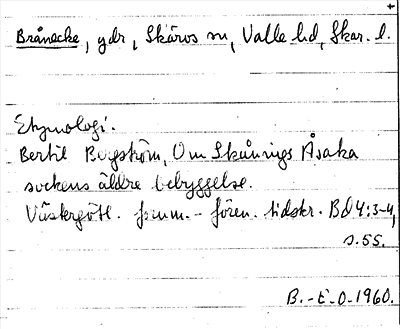 Brånecke, gdr, Skärvs sn, Valle hd, Skar. l.
Etymologi.
Bertil Bergström, Om Skånings Åsaka
sockens äldre bebyggelse.
Västergötl. fornm.- fören. tidskr. Bd 4:3-4,
s.55.
B.-E. O. 1960.